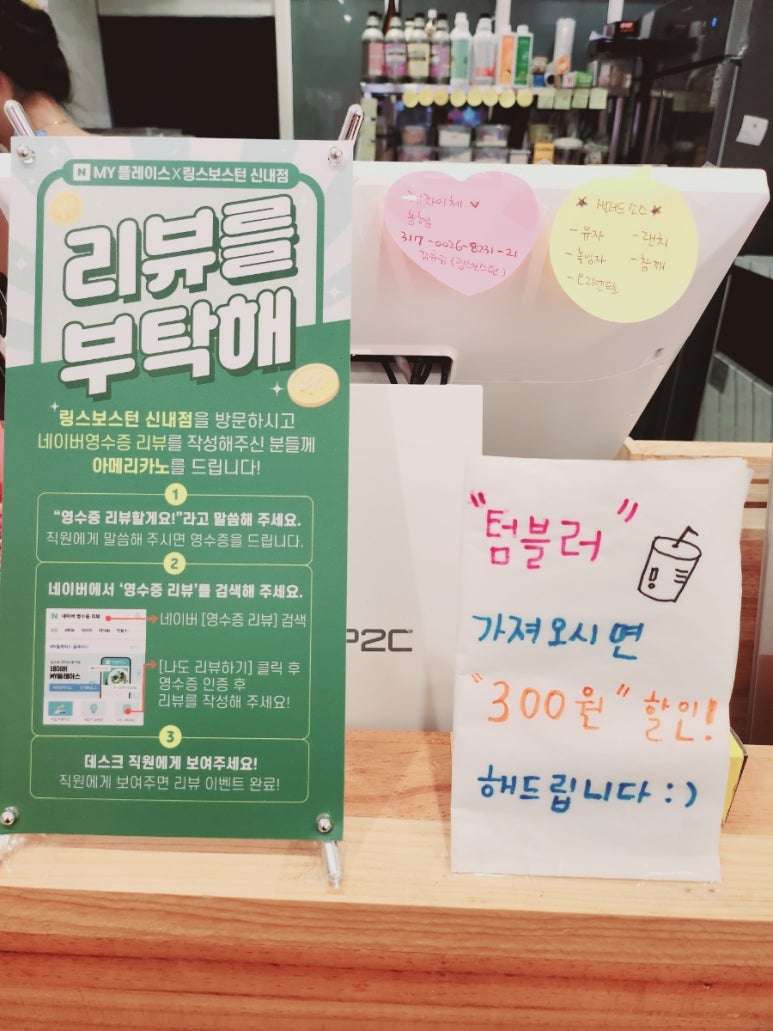 N MY 플레이스X링스보스턴 신내점
리뷰를
부탁해
링스보스턴 신내점을 방문하시고
네이버영수증 리뷰를 작성해주신 분들께
아메리카노를 드립니다!
1
“영수증 리뷰할게요!”라고 말씀해 주세요.
직원에게 말씀해 주시면 영수증을 드립니다.
2
네이버에서 ‘영수증 리뷰’를 검색해 주세요.
N 네이버 영수증 리뷰
네이버 [영수증 리뷰] 검색
MY플레이스
네이버
MY플레이스
[나도 리뷰하기] 클릭 후
영수증 인증 후
리뷰를 작성해 주세요!
3
데스크 직원에게 보여주세요!
직원에게 보여주면 리뷰 이벤트 완료!
농협
317-0026-8231-21
(링스보스턴)
소스
- 유자
- 흑임자
- 오리엔탈
- 랜치
- 참깨
P2C
"텀블러"
가져오시면
"300원" 할인!
해드립니다 :)